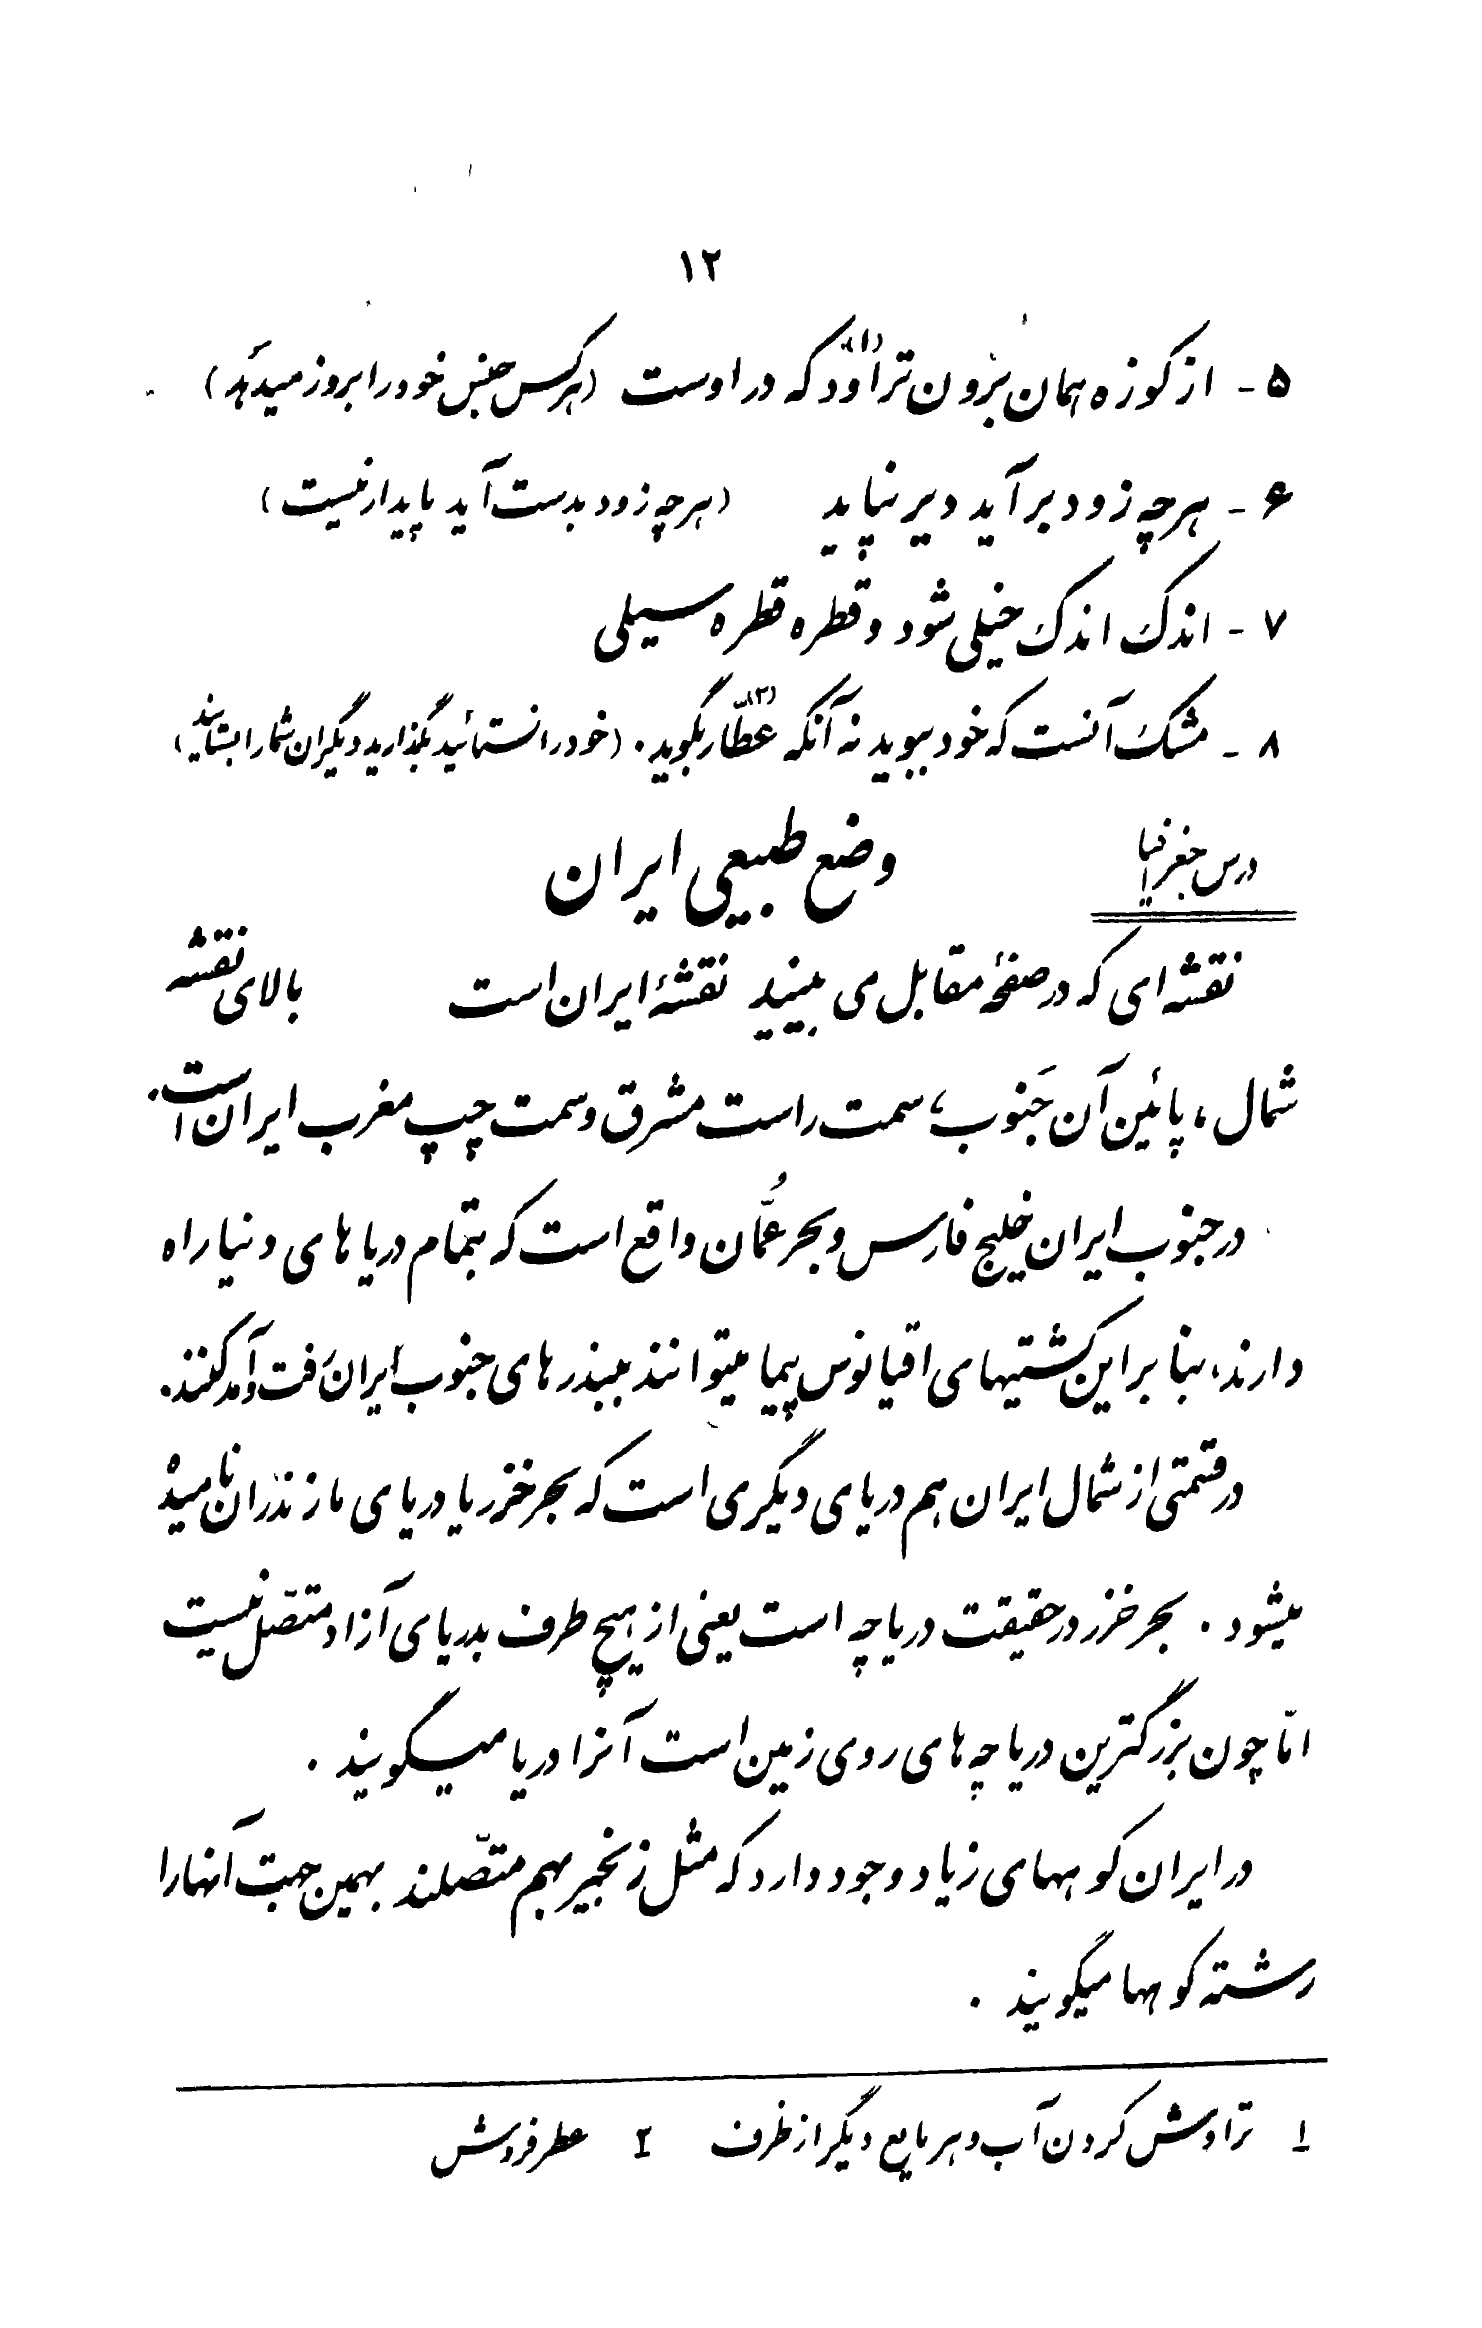 ۱۲
۵ - از کوزه همان برون تراود (۱) که در اوست (هر کس جنس خود را بروز میدهد)
۶ - هر چه زود بر آید دیر نپاید (هر چه زود بدست آید پایدار نیست)
۷ - اندک اندک خیلی شود و قطره قطره سیلی
۸ - مشک آنست که خود ببوید نه آنکه عطّار (۲) بگوید. (خود را نستائید بگذارید دیگران شما را بستایند)
درس جغرافیا
وضع طبیعی ایران
نقشه ای که در صفحهٔ مقابل می بینید نقشهٔ ایران است بالای نقشه
شمال، پائین آن جَنوب، سمت راست مشرق و سمت چپ مغرب ایران است.
در جنوب ایران خلیج فارس و بحر عُمّان واقع است که بتمام دریا های دنیا راه
دارند، بنا بر این کشتیهای اقیانوس پیما میتوانند ببندرهای جنوب ایران رفت و آمد کنند.
در قسمتی از شمال ایران هم دریای دیگری است که بحر خزر یا دریای مازندران نامیده
میشود. بحر خزر در حقیقت دریاچه است یعنی از هیچ طرف بدریای آزاد متّصل نیست
امّا چون بزرگترین دریاچه های روی زمین است آنرا دریا میگویند.
در ایران کوههای زیاد وجود دارد که مثل زنجیر بهم متّصلند بهمین جهت آنها را
رشته کوهها میگویند.
۱ تراوش کردن آب و هر مایع دیگر از ظرف ۲ عطر فروش